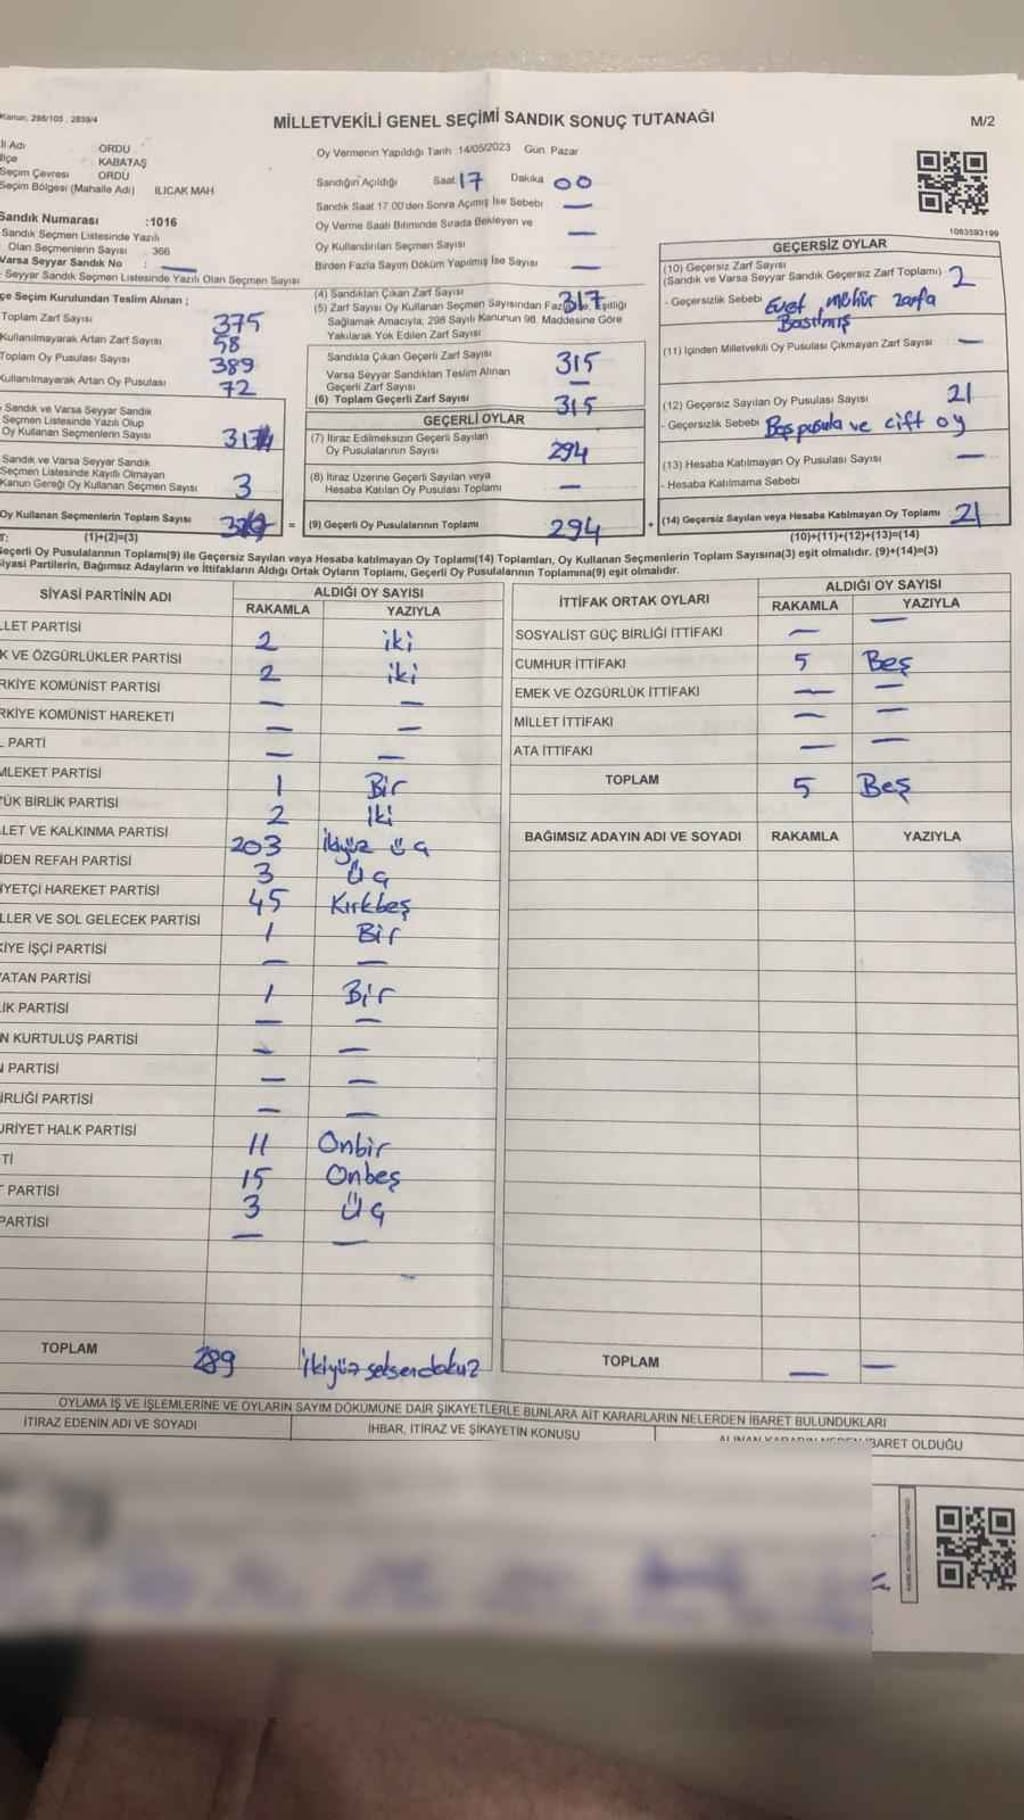 Kanun: 298/105 , 2839/4
MİLLETVEKİLİ GENEL SEÇİMİ SANDIK SONUÇ TUTANAĞI
M/2
İl Adı ORDU
İlçe KABATAŞ
Seçim Çevresi ORDU
Seçim Bölgesi (Mahalle Adı) ILICAK MAH
Sandık Numarası :1016
Sandık Seçmen Listesinde Yazılı
Olan Seçmenlerin Sayısı 366
Varsa Seyyar Sandık No : —
Seyyar Sandık Seçmen Listesinde Yazılı Olan Seçmen Sayısı
Oy Vermenin Yapıldığı Tarih :14/05/2023 Gün: Pazar
Sandığın Açıldığı Saat 17 Dakika 00
Sandık Saat 17.00'den Sonra Açımış İse Sebebi —
Oy Verme Saati Bitiminde Sırada Bekleyen ve
Oy Kullandırılan Seçmen Sayısı —
Birden Fazla Sayım Döküm Yapılmış İse Sayısı —
1083593199
çe Seçim Kurulundan Teslim Alınan ;
Toplam Zarf Sayısı 375
Kullanılmayarak Artan Zarf Sayısı 58
Toplam Oy Pusulası Sayısı 389
Kullanılmayarak Artan Oy Pusulası 72
Sandık ve Varsa Seyyar Sandık
Seçmen Listesinde Yazılı Olup
Oy Kullanan Seçmenlerin Sayısı
Sandık ve Varsa Seyyar Sandık
Seçmen Listesinde Kayıtlı Olmayan
Kanun Gereği Oy Kullanan Seçmen Sayısı 3
Oy Kullanan Seçmenlerin Toplam Sayısı
(1)+(2)=(3)
(4) Sandıktan Çıkan Zarf Sayısı 317
(5) Zarf Sayısı Oy Kullanan Seçmen Sayısından Fazla Eşitliği
Sağlamak Amacıyla, 298 Sayılı Kanunun 98. Maddesine Göre
Yakılarak Yok Edilen Zarf Sayısı
Sandıkta Çıkan Geçerli Zarf Sayısı 315
Varsa Seyyar Sandıktan Teslim Alınan
Geçerli Zarf Sayısı —
(6) Toplam Geçerli Zarf Sayısı 315
GEÇERLİ OYLAR
(7) İtiraz Edilmeksizin Geçerli Sayılan
Oy Pusulalarının Sayısı 294
(8) İtiraz Üzerine Geçerli Sayılan veya
Hesaba Katılan Oy Pusulası Toplamı —
= (9) Geçerli Oy Pusulalarının Toplamı 294
GEÇERSİZ OYLAR
(10) Geçersiz Zarf Sayısı
(Sandık ve Varsa Seyyar Sandık Geçersiz Zarf Toplamı) 2
- Geçersizlik Sebebi Evet mühür zarfa
Basılmış
(11) İçinden Milletvekili Oy Pusulası Çıkmayan Zarf Sayısı —
(12) Geçersiz Sayılan Oy Pusulası Sayısı 21
- Geçersizlik Sebebi Boş pusula ve çift oy
(13) Hesaba Katılmayan Oy Pusulası Sayısı —
- Hesaba Katılmama Sebebi
+ (14) Geçersiz Sayılan veya Hesaba Katılmayan Oy Toplamı 21
(10)+(11)+(12)+(13)=(14)
Geçerli Oy Pusulalarının Toplamı(9) ile Geçersiz Sayılan veya Hesaba katılmayan Oy Toplamı(14) Toplamları, Oy Kullanan Seçmenlerin Toplam Sayısına(3) eşit olmalıdır. (9)+(14)=(3)
Siyasi Partilerin, Bağımsız Adayların ve İttifakların Aldığı Ortak Oyların Toplamı, Geçerli Oy Pusulalarının Toplamına(9) eşit olmalıdır.
SİYASİ PARTİNİN ADI ALDIĞI OY SAYISI
RAKAMLA YAZIYLA
LLET PARTİSİ 2 iki
K VE ÖZGÜRLÜKLER PARTİSİ 2 iki
RKİYE KOMÜNİST PARTİSİ — —
RKİYE KOMÜNİST HAREKETİ — —
PARTİ — —
MLEKET PARTİSİ 1 Bir
ÜK BİRLİK PARTİSİ 2 İki
LET VE KALKINMA PARTİSİ 203 İkiyüz üç
İDEN REFAH PARTİSİ 3 Üç
İYETÇİ HAREKET PARTİSİ 45 Kırkbeş
LLER VE SOL GELECEK PARTİSİ 1 Bir
KİYE İŞÇİ PARTİSİ — —
ATAN PARTİSİ 1 Bir
İK PARTİSİ — —
N KURTULUŞ PARTİSİ — —
PARTİSİ — —
İRLİĞİ PARTİSİ — —
URİYET HALK PARTİSİ 11 Onbir
Tİ 15 Onbeş
PARTİSİ 3 Üç
PARTİSİ — —
TOPLAM 289 İkiyüz seksendokuz
İTTİFAK ORTAK OYLARI ALDIĞI OY SAYISI
RAKAMLA YAZIYLA
SOSYALİST GÜÇ BİRLİĞİ İTTİFAKI — —
CUMHUR İTTİFAKI 5 Beş
EMEK VE ÖZGÜRLÜK İTTİFAKI — —
MİLLET İTTİFAKI — —
ATA İTTİFAKI — —
TOPLAM 5 Beş
BAĞIMSIZ ADAYIN ADI VE SOYADI RAKAMLA YAZIYLA
TOPLAM — —
OYLAMA İŞ VE İŞLEMLERİNE VE OYLARIN SAYIM DÖKÜMÜNE DAİR ŞİKAYETLERLE BUNLARA AİT KARARLARIN NELERDEN İBARET BULUNDUKLARI
İTİRAZ EDENİN ADI VE SOYADI
İHBAR, İTİRAZ VE ŞİKAYETİN KONUSU
ALINAN KARARIN NEDEN İBARET OLDUĞU